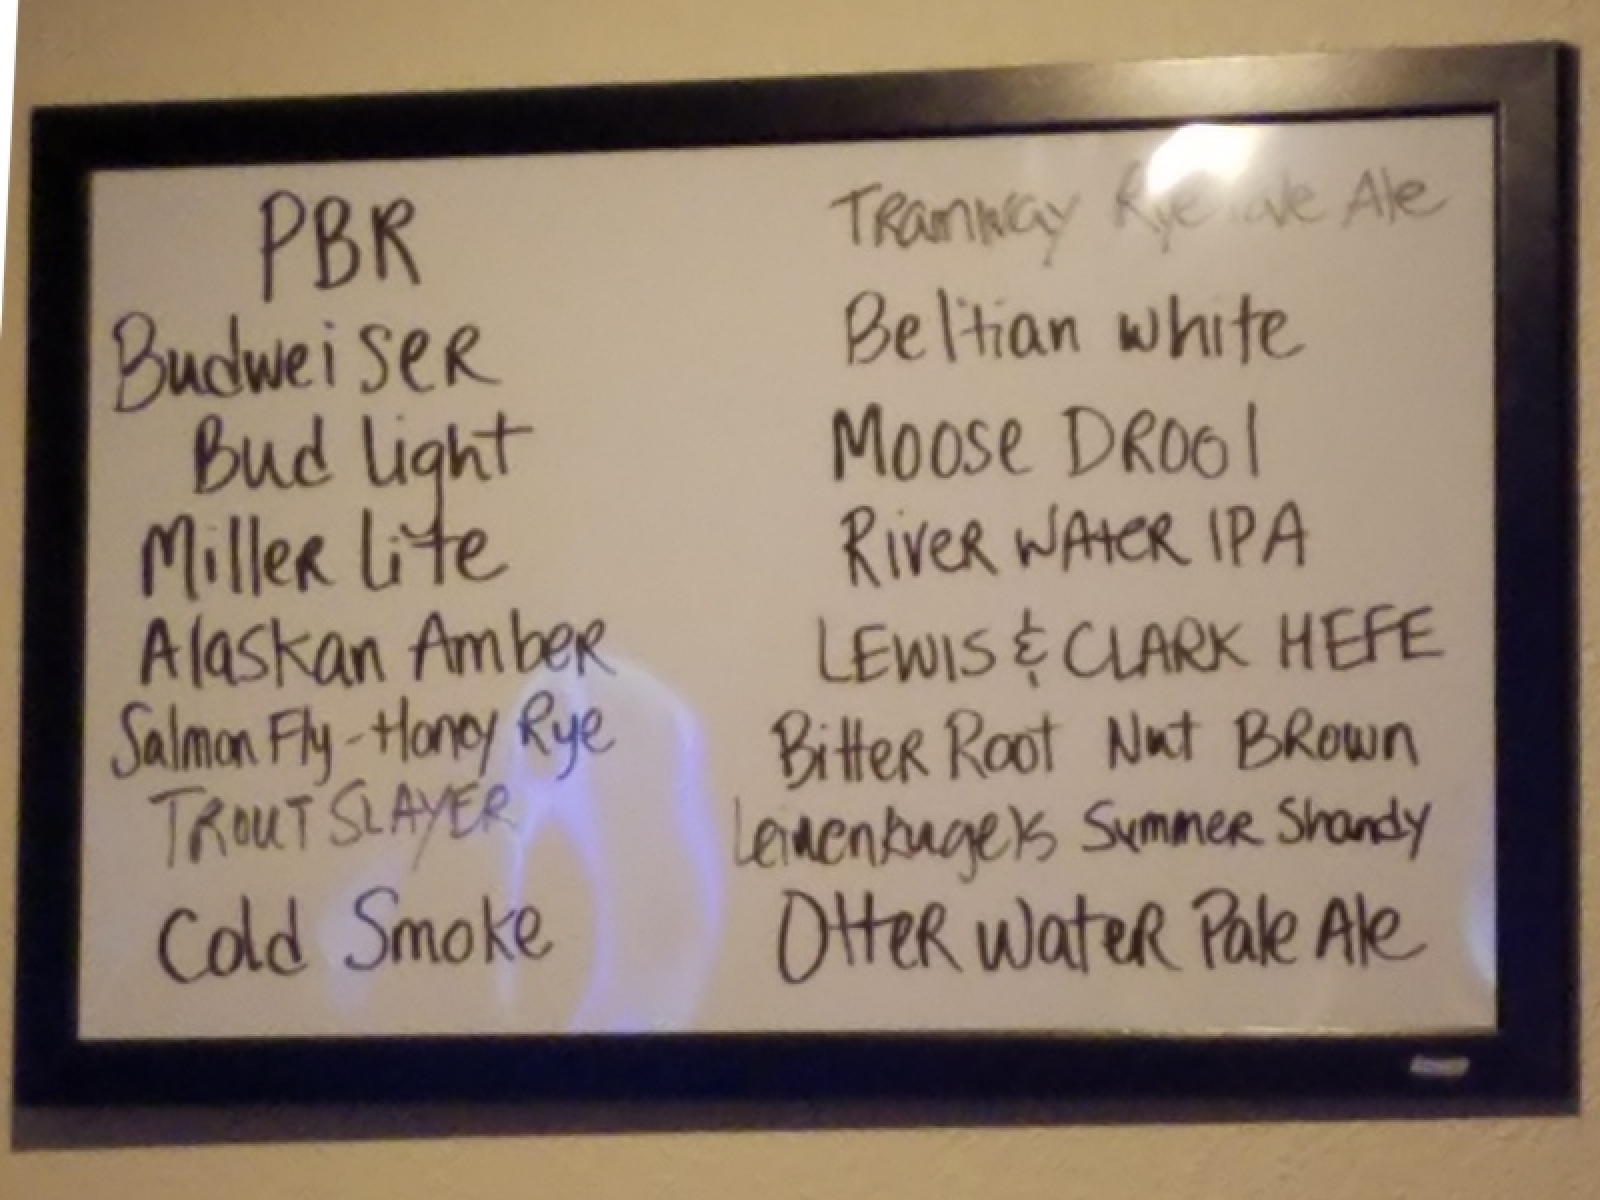 PBR
Budweiser
Bud Light
Miller Lite
Alaskan Amber
Salmon Fly - Honey Rye
TROUT SLAYER
Cold Smoke
Tramway Rye Ale
Beltian white
Moose DRool
RiveR WAteR IPA
LEWIS & CLARK HEFE
BitteR Root Nut BRown
Leinenkugel's Summer Shandy
OtteR Water Pale Ale